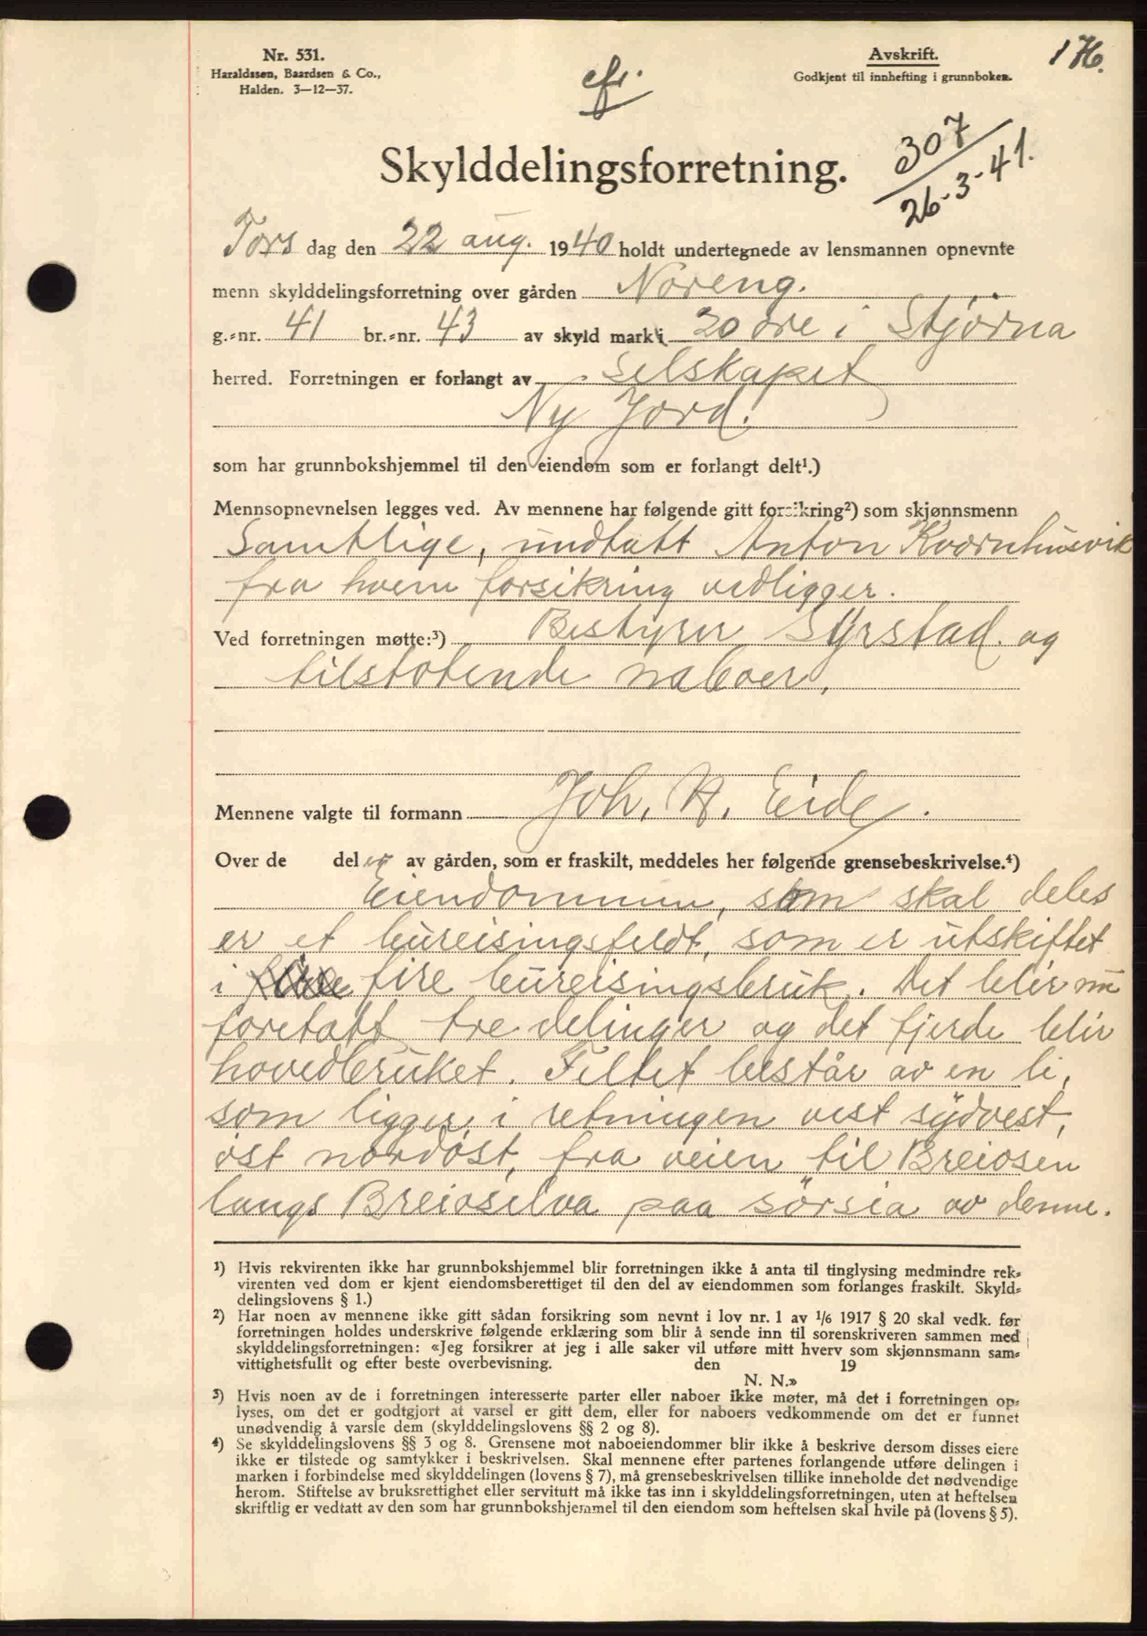 Nr. 531.
Haraldssen, Baardsen & Co.,
Halden. 3—12—37.
Avskrift.
Godkjent til innhefting i grunnboken.
176.
Skylddelingsforretning.
307
26-3-41.
Tors dag den 22 aug. 1940 holdt undertegnede av lensmannen opnevnte
menn skylddelingsforretning over gården Noreng.
g.-nr. 41 br.-nr. 43 av skyld mark i 20 öre i Stjørna
herred. Forretningen er forlangt av Selskapet
Ny Jord.
som har grunnbokshjemmel til den eiendom som er forlangt delt¹.)
Mennsopnevnelsen legges ved. Av mennene har følgende gitt forsikring²) som skjønnsmenn
Samtlige, undtatt Anton Kvørnhusvik
fra hvem forsikring vedligger.
Ved forretningen møtte:³) Bestyrer Syrstad. og
tilstøtende naboer.
Mennene valgte til formann Joh. N. Eide.
Over de del er av gården, som er fraskilt, meddeles her følgende grensebeskrivelse.⁴)
Eiendommen, som skal deles
er et bureisingsfeldt, som er utskiftet
i fire bureisingsbruk. Det blir nu
foretatt tre delinger og det fjerde blir
hovedbruket. Feltet består av en li,
som ligger i retningen vest sydvest,
øst nordøst, fra veien til Breiosen
langs Breioselva paa sörsia av denne.
1) Hvis rekvirenten ikke har grunnbokshjemmel blir forretningen ikke å anta til tinglysing medmindre rek-
virenten ved dom er kjent eiendomsberettiget til den del av eiendommen som forlanges fraskilt. Skyld-
delingslovens § 1.)
2) Har noen av mennene ikke gitt sådan forsikring som nevnt i lov nr. 1 av 1/6 1917 § 20 skal vedk. før
forretningen holdes underskrive følgende erklæring som blir å sende inn til sorenskriveren sammen med
skylddelingsforretningen: «Jeg forsikrer at jeg i alle saker vil utføre mitt hverv som skjønnsmann sam-
vittighetsfullt og efter beste overbevisning. den 19
N. N.»
3) Hvis noen av de i forretningen interesserte parter eller naboer ikke møter, må det i forretningen op-
lyses, om det er godtgjort at varsel er gitt dem, eller for naboers vedkommende om det er funnet
unødvendig å varsle dem (skylddelingslovens §§ 2 og 8).
4) Se skylddelingslovens §§ 3 og 8. Grensene mot naboeiendommer blir ikke å beskrive dersom disses eiere
ikke er tilstede og samtykker i beskrivelsen. Skal mennene efter partenes forlangende utføre delingen i
marken i forbindelse med skylddelingen (lovens § 7), må grensebeskrivelsen tillike inneholde det nødvendige
herom. Stiftelse av bruksrettighet eller servitutt må ikke tas inn i skylddelingsforretningen, uten at heftelsen
skriftlig er vedtatt av den som har grunnbokshjemmel til den eiendom som heftelsen skal hvile på (lovens § 5).